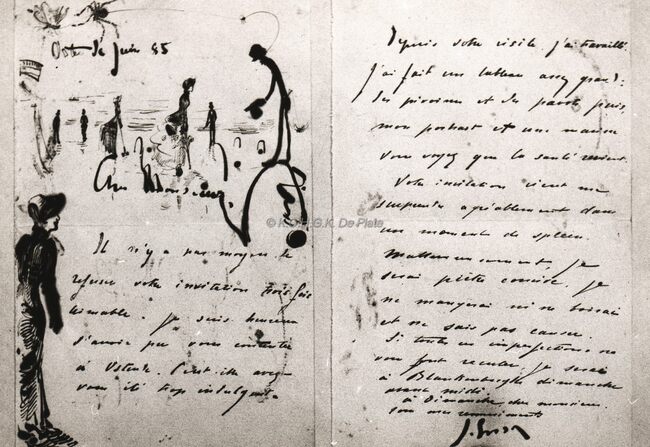 Ost 30 juin 85
Cher Monsieur,
Il n'y a pas moyen de
refuser votre invitation très fois
aimable. Je suis heureux
d'avoir pu vous
à Ostende. C'est
vous été trop indulgent.
Depuis votre visite j'ai travaillé.
J'ai fait un tableau assez grand:
des pivoines et des pavots, puis,
mon portrait et une
vous voyez que la santé revient.
Votre invitation vient me
surprendre agréablement dans
un moment de spleen.
Malheureusement, je
serai piètre convive, je
ne mangerai ni ne boirai
et ne sais pas causer.
Si toutes ces imperfections ne
vous font reculer, je serai
à Blankenberghe dimanche
avant midi
à Dimanche cher monsieur
J. Ensor
© K.O.H.G.K. De Plate